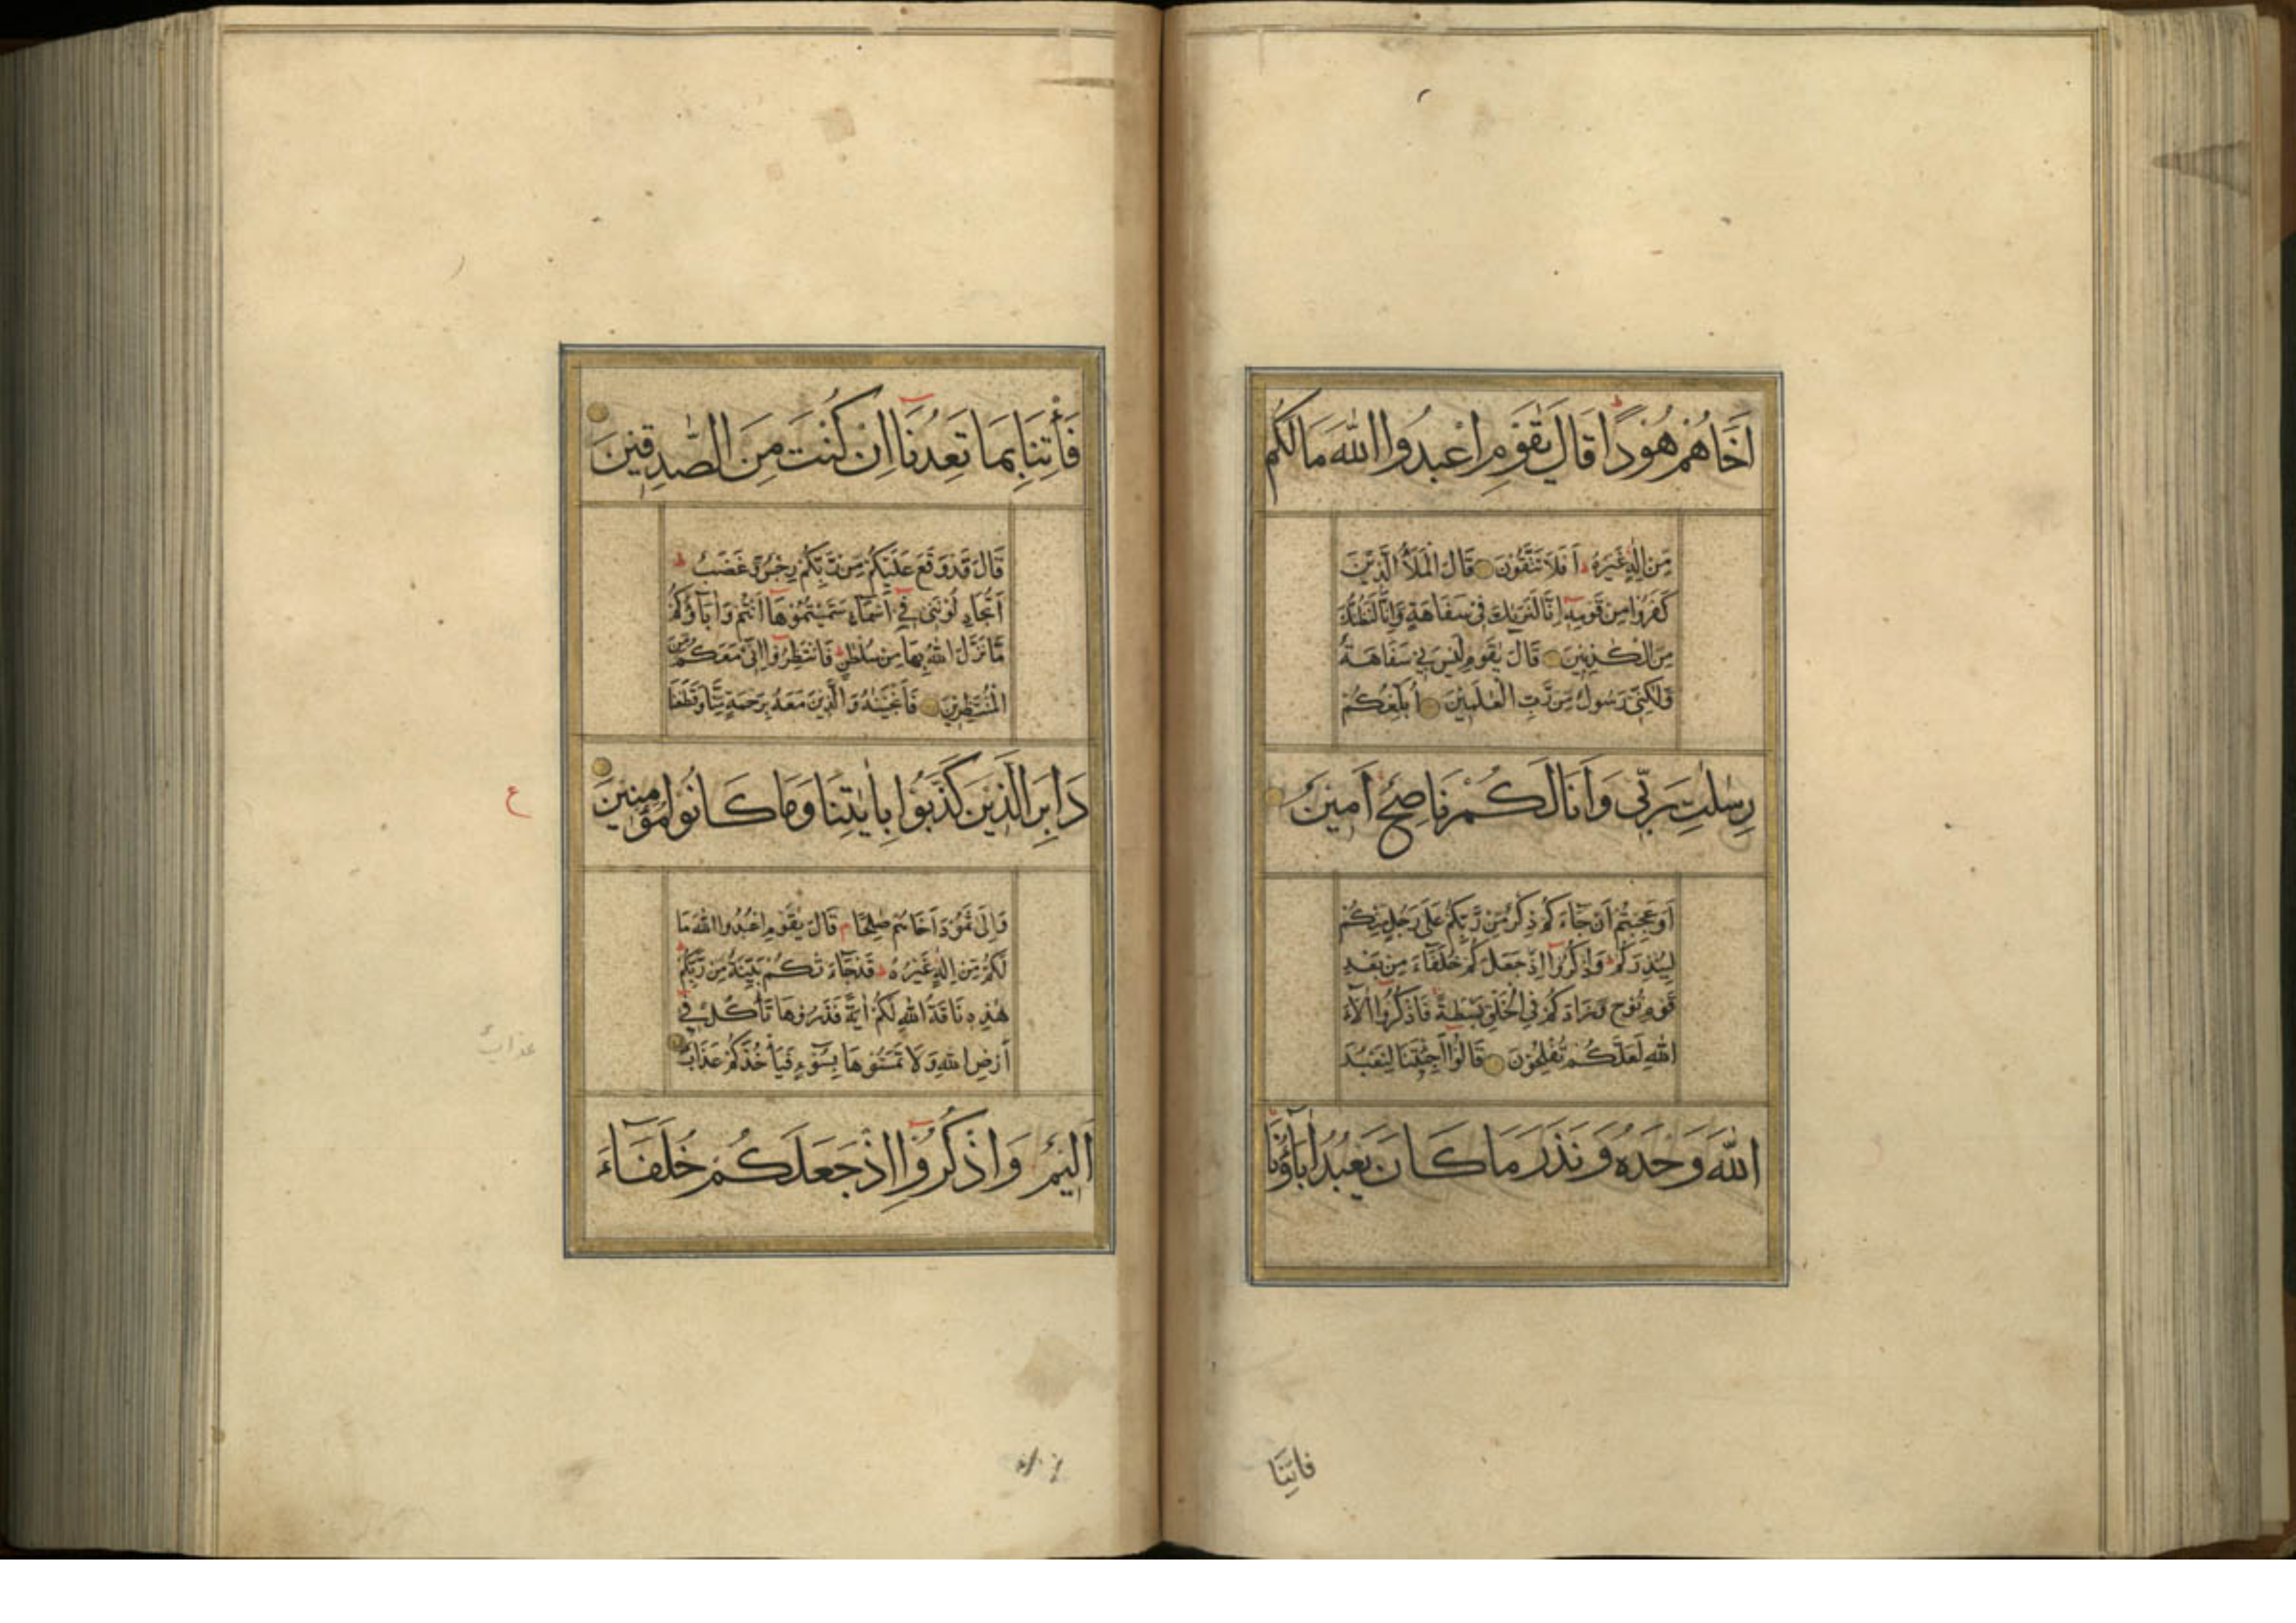 اَخَاهُمْ هُوْدًا قَالَ يٰقَوْمِ اعْبُدُوا اللّٰهَ مَا لَكُمْ
مِّنْ اِلٰهٍ غَيْرُهٗ ط اَفَلَا تَتَّقُوْنَ قَالَ الْمَلَاُ الَّذِيْنَ
كَفَرُوْا مِنْ قَوْمِهٖٓ اِنَّا لَنَرٰىكَ فِيْ سَفَاهَةٍ وَّاِنَّا لَنَظُنُّكَ
مِنَ الْكٰذِبِيْنَ قَالَ يٰقَوْمِ لَيْسَ بِيْ سَفَاهَةٌ
وَّلٰكِنِّيْ رَسُوْلٌ مِّنْ رَّبِّ الْعٰلَمِيْنَ اُبَلِّغُكُمْ
رِسٰلٰتِ رَبِّيْ وَاَنَا لَكُمْ نَاصِحٌ اَمِيْنٌ
اَوَعَجِبْتُمْ اَنْ جَآءَكُمْ ذِكْرٌ مِّنْ رَّبِّكُمْ عَلٰى رَجُلٍ مِّنْكُمْ
لِيُنْذِرَكُمْ ط وَاذْكُرُوْٓا اِذْ جَعَلَكُمْ خُلَفَآءَ مِنْ بَعْدِ
قَوْمِ نُوْحٍ وَّزَادَكُمْ فِي الْخَلْقِ بَسْطَةً فَاذْكُرُوْٓا اٰلَآءَ
اللّٰهِ لَعَلَّكُمْ تُفْلِحُوْنَ قَالُوْٓا اَجِئْتَنَا لِنَعْبُدَ
اللّٰهَ وَحْدَهٗ وَنَذَرَ مَا كَانَ يَعْبُدُ اٰبَآؤُنَا
فاتِنَا
فَاْتِنَا بِمَا تَعِدُنَآ اِنْ كُنْتَ مِنَ الصّٰدِقِيْنَ
قَالَ قَدْ وَقَعَ عَلَيْكُمْ مِّنْ رَّبِّكُمْ رِجْسٌ وَّغَضَبٌ ط
اَتُجَادِلُوْنَنِيْ فِيْٓ اَسْمَآءٍ سَمَّيْتُمُوْهَآ اَنْتُمْ وَاٰبَآؤُكُمْ
مَّا نَزَّلَ اللّٰهُ بِهَا مِنْ سُلْطٰنٍ ط فَانْتَظِرُوْٓا اِنِّيْ مَعَكُمْ مِّنَ
الْمُنْتَظِرِيْنَ فَاَنْجَيْنٰهُ وَالَّذِيْنَ مَعَهٗ بِرَحْمَةٍ مِّنَّا وَقَطَعْنَا
دَابِرَ الَّذِيْنَ كَذَّبُوْا بِاٰيٰتِنَا وَمَا كَانُوْا مُؤْمِنِيْنَ
ع
وَاِلٰى ثَمُوْدَ اَخَاهُمْ صٰلِحًا م قَالَ يٰقَوْمِ اعْبُدُوا اللّٰهَ مَا
لَكُمْ مِّنْ اِلٰهٍ غَيْرُهٗ ط قَدْ جَآءَتْكُمْ بَيِّنَةٌ مِّنْ رَّبِّكُمْ ط
هٰذِهٖ نَاقَةُ اللّٰهِ لَكُمْ اٰيَةً فَذَرُوْهَا تَاْكُلْ فِيْٓ
اَرْضِ اللّٰهِ وَلَا تَمَسُّوْهَا بِسُوْٓءٍ فَيَاْخُذَكُمْ عَذَابٌ
عذابٌ
اَلِيْمٌ وَاذْكُرُوْٓا اِذْ جَعَلَكُمْ خُلَفَآءَ